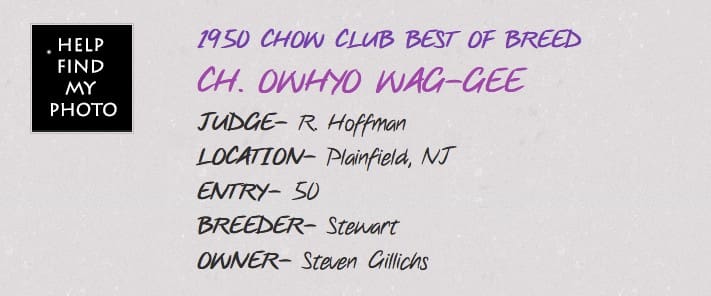 HELP
FIND
MY
PHOTO
1950 CHOW CLUB BEST OF BREED
CH. OWHYO WAG-GEE
JUDGE- R. Hoffman
LOCATION- Plainfield, NJ
ENTRY- 50
BREEDER- Stewart
OWNER- Steven Gillichs